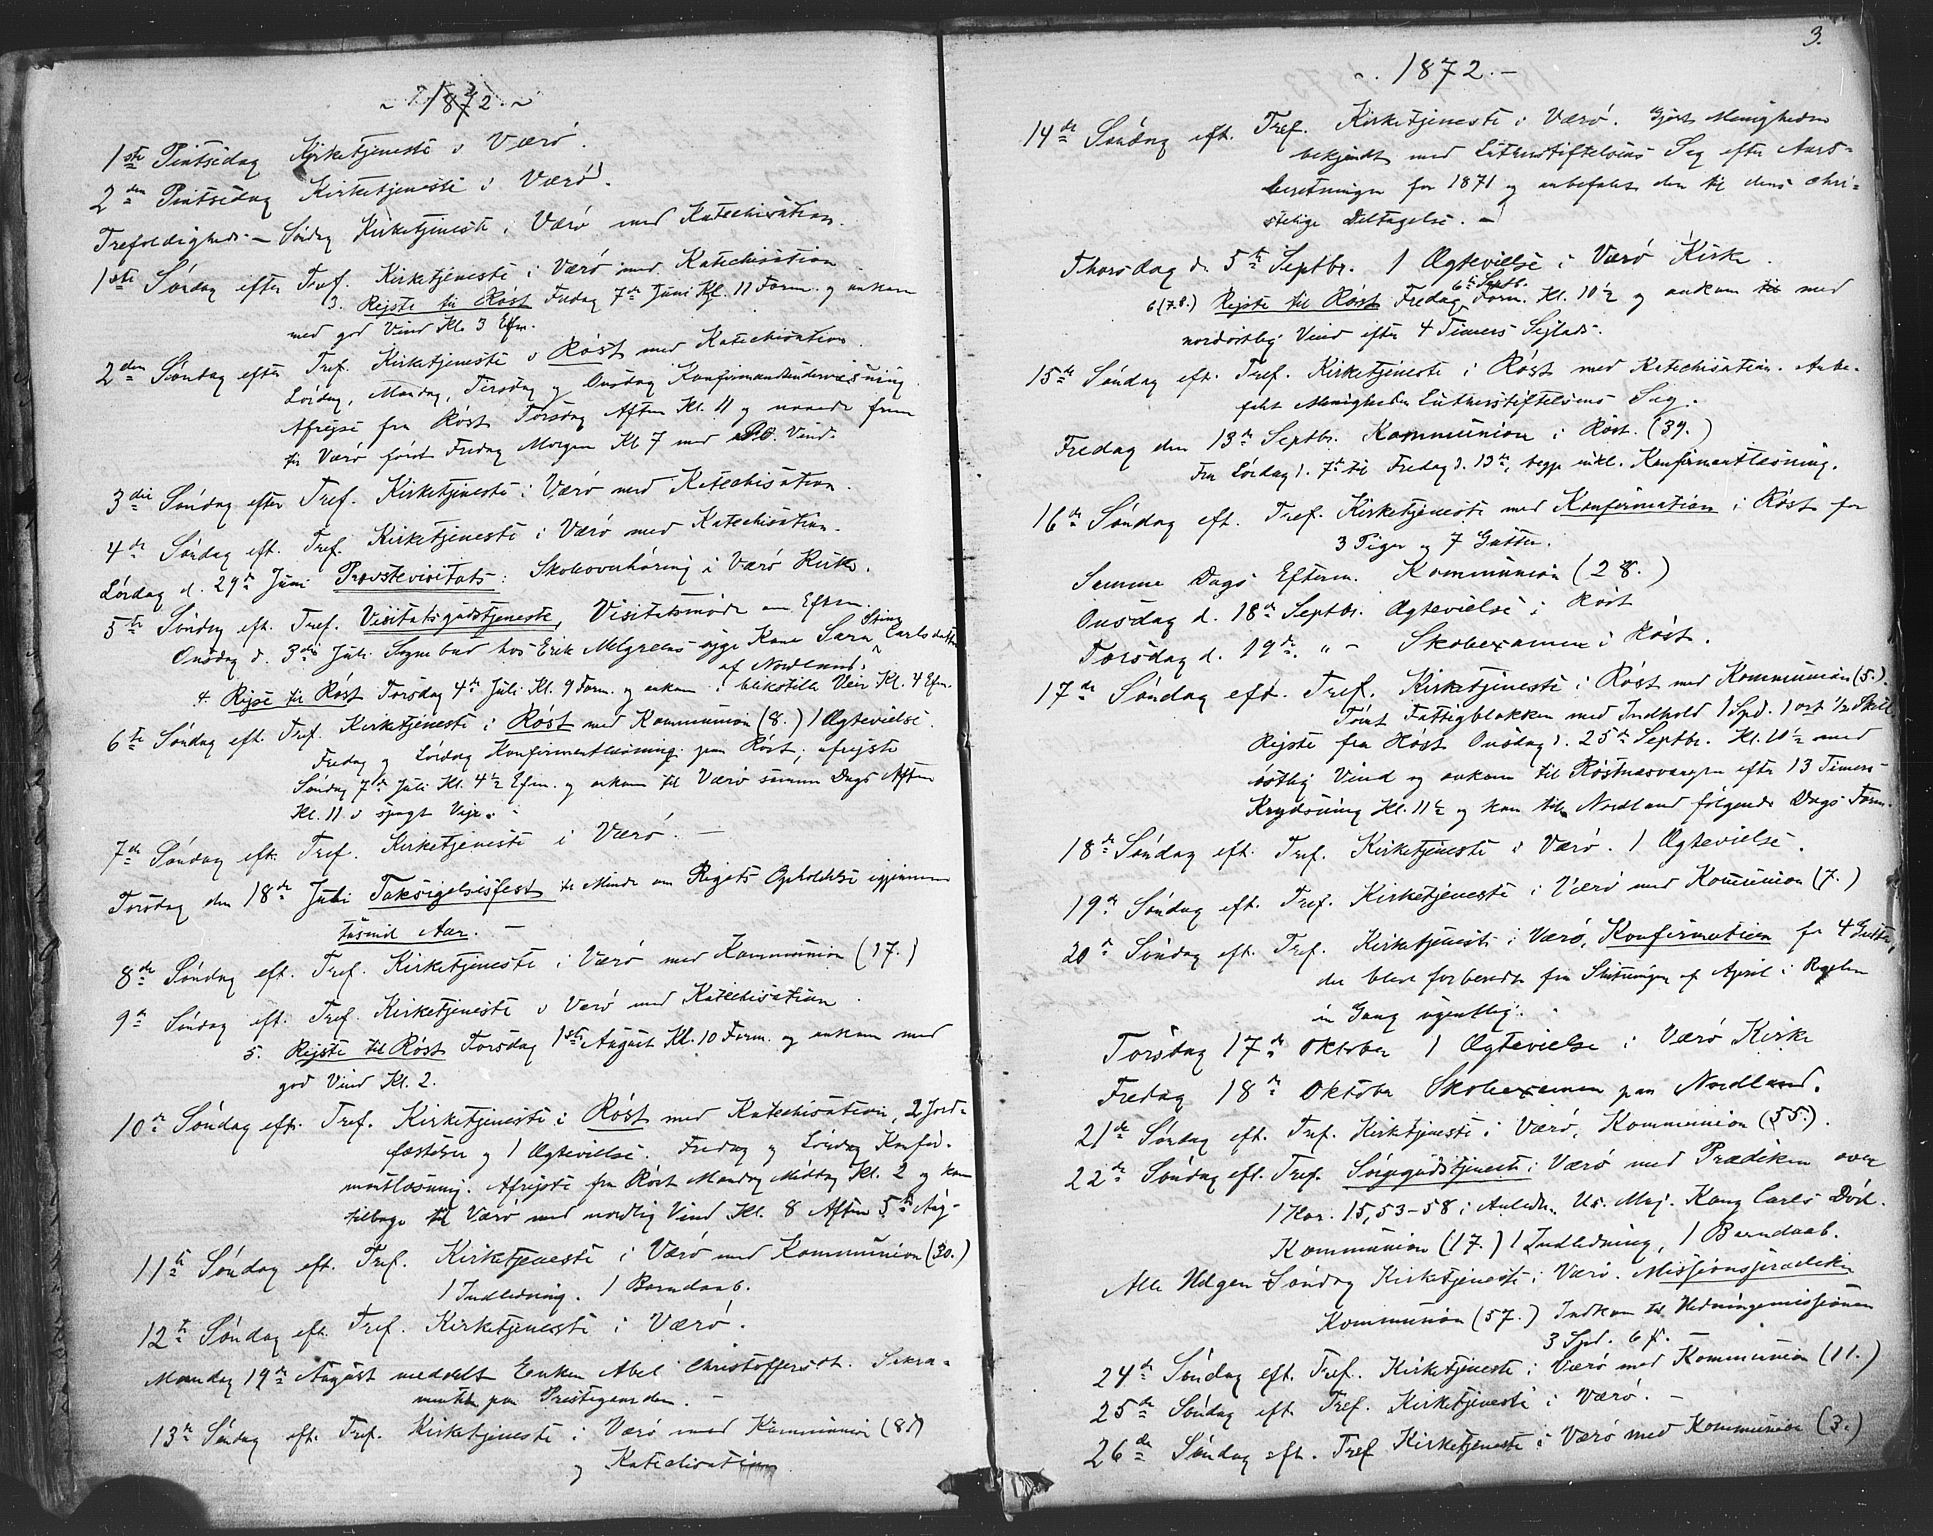 1872.
1ste Pintsedag Kirketjeneste i Værø.
2den Pintsedag Kirketjeneste i Værø.
Trefoldigheds-Søndag Kirketjeneste i Værø med Katechisation.
1ste Søndag efter Tref. Kirketjeneste i Værø med Katechisation
3. Rejste til Røst Fredag 7de Juni Kl. 11 Form. og ankom
med god Vind Kl. 3 Efm.
2den Søndag efter Tref. Kirketjeneste i Røst med Katechisation.
Lördag, Mandag, Tirsdag og Onsdag Konfirmandundervisning.
Afrejse fra Röst Torsdag Aften Kl. 11 og naaede frem
til Værø først Fredag Morgen Kl 7 med Vind.
3die Søndag efter Tref. Kirketjeneste i Værø med Katechisation.
4de Søndag eft. Tref. Kirketjeneste i Værø med Katechisation.
Lørdag d. 29de Juni Provstevisitats: Skoleoverhøring i Værø Kirke.
5te Søndag eft. Tref. Visitatsgudstjeneste, Visitatsmøde om Efterm.
Onsdag d. 3die Juli Sognebud hos Erik Melgreens syge Kone Sara Stina Carlsdatter
af Nordland.
4. Rejse til Röst Torsdag 4de Juli Kl. 9 Form. og ankom i blikstille Veir Kl. 4 Efm.
6te Søndag eft. Tref. Kirketjeneste i Röst med Kommunion (8.) 1 Ægtevielse.
Fredag og Lördag Konfirmantlæsning paa Röst; afrejste
Søndag 7de Juli Kl. 4½ Efm. og ankom til Værø samme Dags Aften
Kl. 11 i spagt Vejr.
7de Søndag eft. Tref. Kirketjeneste i Værø. —
Torsdag den 18de Juli Taksigelsesfest til Minde om Rigets Opholdelse igjennem
tusind Aar. —
8de Søndag eft. Tref. Kirketjeneste i Værø med Kommunion (17.)
9de Søndag eft. Tref. Kirketjeneste i Værø med Katechisation.
5. Rejste til Röst Torsdag 1ste August Kl. 10 Form. og ankom med
god Vind Kl. 2.
10de Søndag eft. Tref. Kirketjeneste i Röst med Katechisation, 2 Jord-
fæstelser og 1 Ægtevielse. Fredag og Lördag Konfir-
mantlæsning. Afrejste fra Röst Mandag Middag Kl. 2 og kom
tilbage til Værø med nordlig Vind Kl. 8 Aften 5te Aug-
11te Søndag eft. Tref. Kirketjeneste i Værø med Kommunion (30.)
1 Indledning. 1 Barndaab.
12te Søndag eft. Tref. Kirketjeneste i Værø.
Mandag 19de August meddelt Enken Abel Christoffersdt. Sakra-
mentet paa Prestegaarden. —
13de Søndag eft. Tref. Kirketjeneste i Værø med Kommunion (8)
og Katechisation
3.
1872. —
14de Søndag eft. Tref. Kirketjeneste i Værø. Gjort Menigheden
bekjendt med Lutherstiftelsens Sag efter Aars-
beretningen for 1871 og anbefalet den til dens chri-
stelige Deltagelse. —
Thorsdag d. 5te Septbr. 1 Ægtevielse i Værø Kirke.
6 (7.8.) Rejste til Röst Fredag 6te Septb. Form. Kl. 10½ og ankom med
nordostlig Vind efter 4 Timers Sejlads.
15de Søndag eft. Tref. Kirketjeneste i Röst med Katechisation. Anbe-
falet Menigheden Lutherstiftelsens Sag.
Fredag den 13de Septbr. Kommunion i Röst. (39.)
Fra Lördag d. 7de til Fredag d. 13de, begge inkl. Konfirmantlæsning.
16de Søndag eft. Tref. Kirketjeneste med Konfirmation i Röst for
3 Piger og 7 Gutter.
Samme Dags Efterm. Kommunion (28.)
Onsdag d. 18de Septbr. Ægtevielse i Röst
Torsdag d. 19de " — Skoleexamen i Röst.
17de Søndag eft. Tref. Kirketjeneste i Röst med Kommunion (5.).
Tömt Fattigblokken med Indhold 1 Spd. 1 ort ½ Skill.
Rejste fra Röst Onsdag d. 25de Septbr. Kl. 10½ med
östlig Vind og ankom til Röstnesvaagen efter 13 Timers
Krydsning Kl. 11½ og kom til Nordland følgende Dags Form.
18de Søndag eft. Tref. Kirketjeneste i Værø. 1 Ægtevielse.
19de Søndag eft. Tref. Kirketjeneste i Værø med Kommunion (7.)
20de Søndag eft. Tref. Kirketjeneste i Værø, Konfirmation for 4 Gutter,
der blev forberedt fra Slutningen af April i Regelen
en Gang ugentlig.
Torsdag 17de Oktober 1 Ægtevielse i Værø Kirke
Fredag 18de Oktober Skoleexamen paa Nordland.
21de Søndag eft. Tref. Kirketjeneste i Værø, Kommunion (55.).
22de Søndag eft. Tref. Sørgegudstjeneste i Værø med Prædiken over
1 Kor. 15, 53–58 i Anledn. Hs. Maj. Kong Carls Död.
Kommunion (17.) 1 Indledning, 1 Barndaab.
Alle Helgen Søndag Kirketjeneste i Værø. Missionsprædiken
Kommunion (57.) Indkom til Hedningemissionen
3 Spd. 6 ſ. —
24de Søndag eft. Tref. Kirketjeneste i Værø med Kommunion (11.)
25de Søndag eft. Tref. Kirketjeneste i Værø. —
26de Søndag eft. Tref Kirketjeneste i Værø med Kommunion (3.)